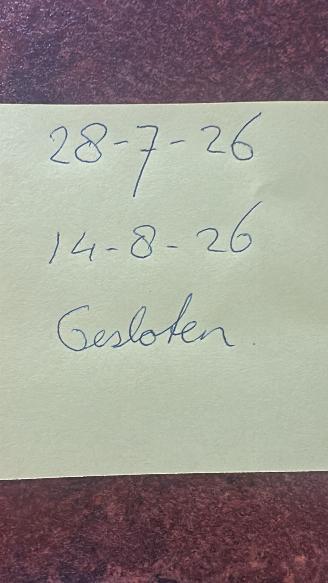 28-7-26
14-8-26
Gesloten.